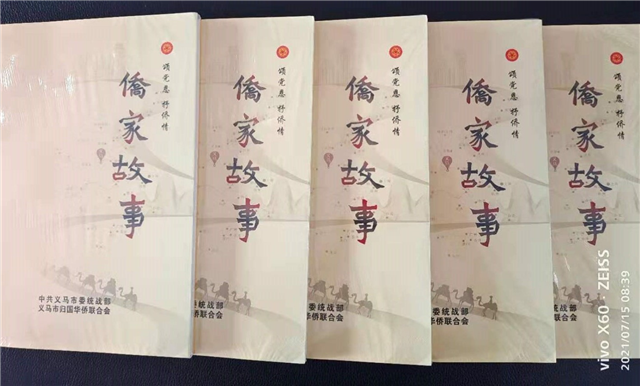 颂党恩 抒侨情
僑家故事
中共义马市委统战部
义马市归国华侨联合会
颂党恩 抒侨情
僑家故事
统战部
侨联合会
颂党恩 抒侨情
僑家故事
委统战部
华侨联合会
颂党恩 抒侨情
僑家故事
委统战部
华侨联合会
颂党恩 抒侨情
僑家故事
委统战部
华侨联合会
vivo X60 · ZEISS
2021/07/15 08:39